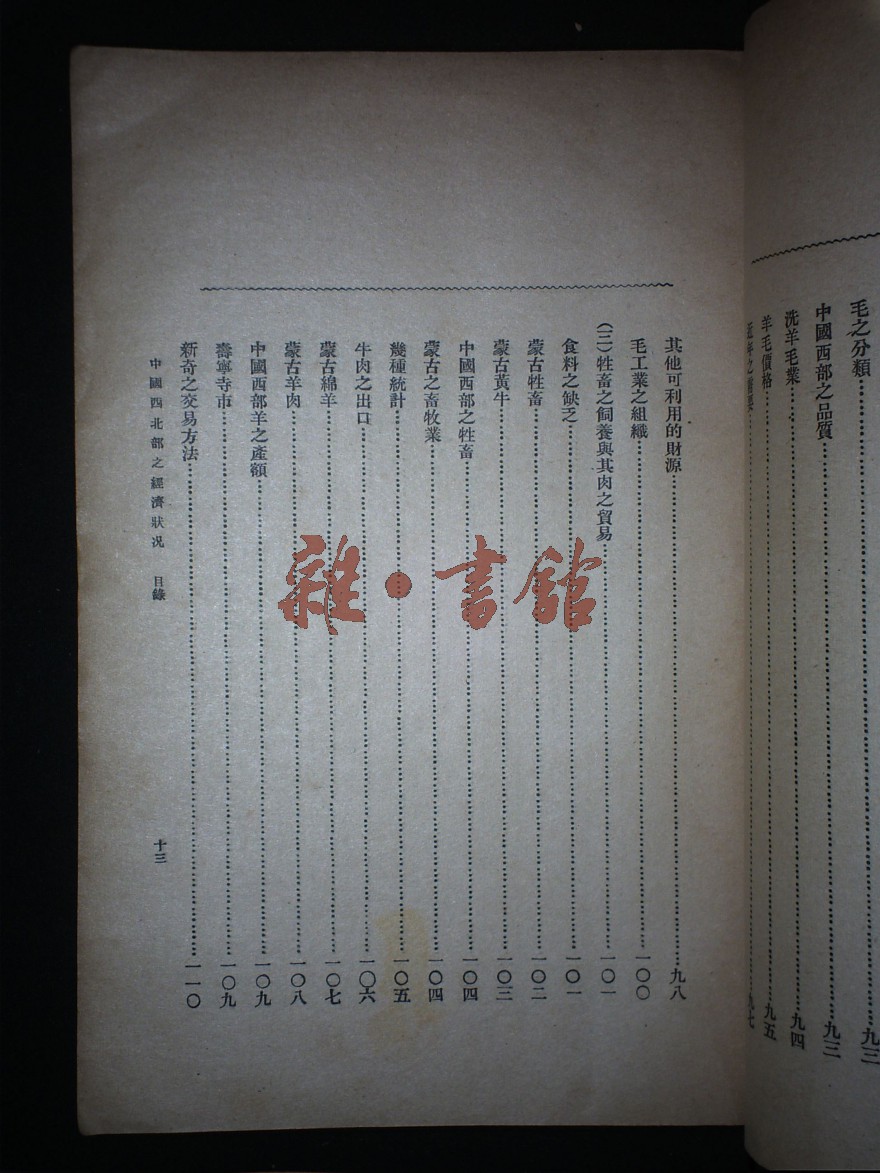 毛之分類……九三
中國西部之品質……九三
洗羊毛業……九四
羊毛價格……九五
九七
其他可利用的財源……九八
毛工業之組織……一〇〇
(二)牲畜之飼養與其肉之貿易……一〇一
食料之缺乏……一〇一
蒙古牲畜……一〇二
蒙古黃牛……一〇三
中國西部之牲畜……一〇四
蒙古之畜牧業……一〇四
幾種統計……一〇五
牛肉之出口……一〇六
蒙古綿羊……一〇七
蒙古羊肉……一〇八
中國西部羊之產額……一〇九
壽寧寺市……一〇九
新奇之交易方法……一一〇
中國西北部之經濟狀况 目錄 十三
雜·書館